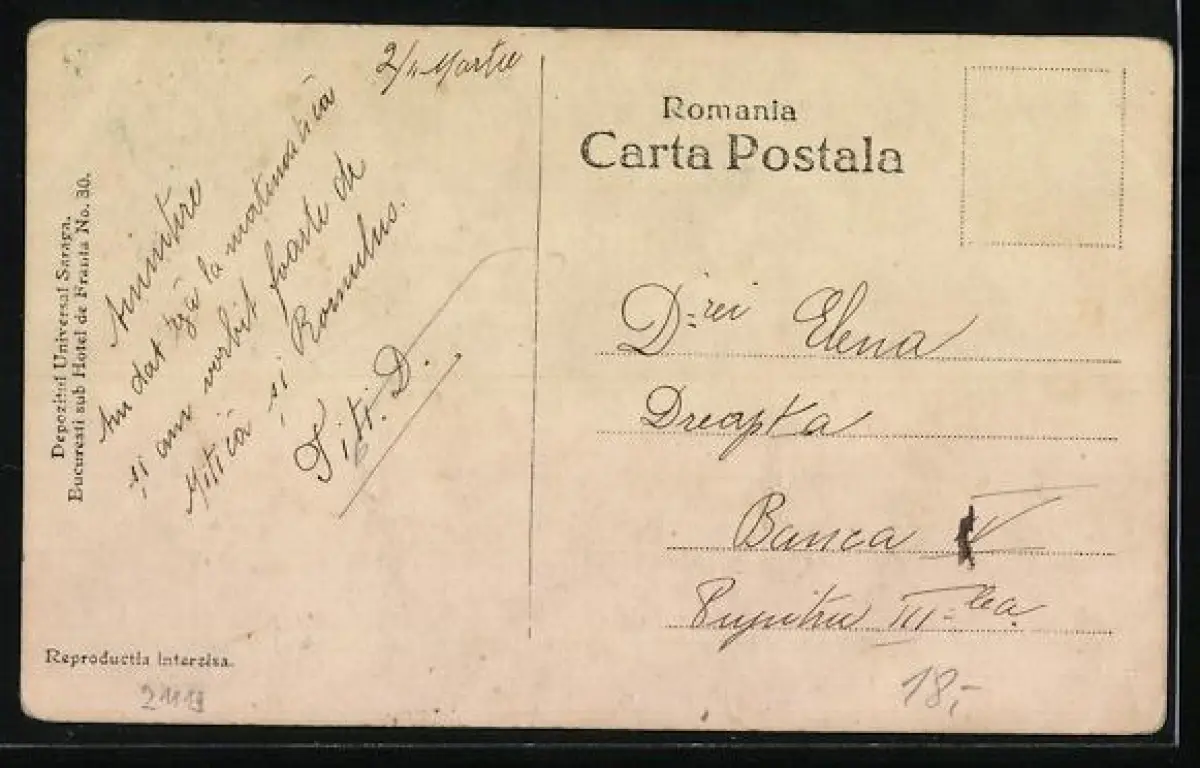 2/ Martie
Amintire
Am dat la matematică
și am vorbit foarte de
Mitică și Romulus.
Titi. D.
Depozitul Universal Saraga.
Bucuresti sub Hotel de Franta No. 30.
Reproductia interzisa.
2113
Romania
Carta Postala
D=rei Elena
Dreapta
Banca V
Pupitru III=lea
18,-